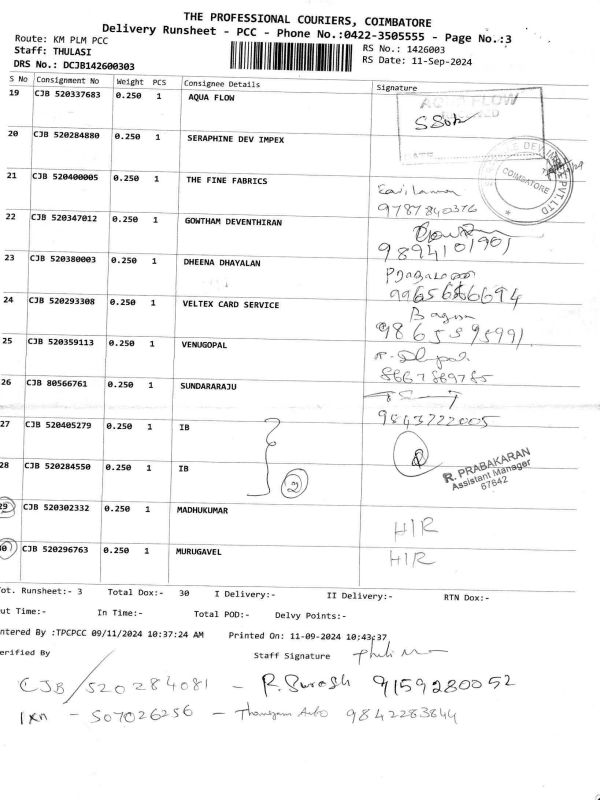 THE PROFESSIONAL COURIERS, COIMBATORE
Delivery Runsheet - PCC - Phone No.:0422-3505555 - Page No.:3
Route: KM PLM PCC
RS No.: 1426003
Staff: THULASI
RS Date: 11-Sep-2024
DRS No.: DCJB142600303
S No Consignment No Weight PCS Consignee Details Signature
19 CJB 520337683 0.250 1 AQUA FLOW
AQUA FLOW
20 CJB 520284880 0.250 1 SERAPHINE DEV IMPEX
COIMBATORE
21 CJB 520400005 0.250 1 THE FINE FABRICS
9787840376
22 CJB 520347012 0.250 1 GOWTHAM DEVENTHIRAN
9894101901
23 CJB 520380003 0.250 1 DHEENA DHAYALAN
24 CJB 520293308 0.250 1 VELTEX CARD SERVICE
9865595991
25 CJB 520359113 0.250 1 VENUGOPAL
8667869785
26 CJB 80566761 0.250 1 SUNDARARAJU
9843722005
27 CJB 520405279 0.250 1 IB
28 CJB 520284550 0.250 1 IB
2
R. PRABAKARAN
Assistant Manager
67642
29 CJB 520302332 0.250 1 MADHUKUMAR
H/R
30 CJB 520296763 0.250 1 MURUGAVEL
H/R
ot. Runsheet:- 3 Total Dox:- 30 I Delivery:- II Delivery:- RTN Dox:-
ut Time:- In Time:- Total POD:- Delvy Points:-
ntered By :TPCPCC 09/11/2024 10:37:24 AM Printed On: 11-09-2024 10:43:37
erified By Staff Signature
CJB/520284081 - R. Suresh 9159280052
IXN - 507026256 - Thangam Auto 9842283844